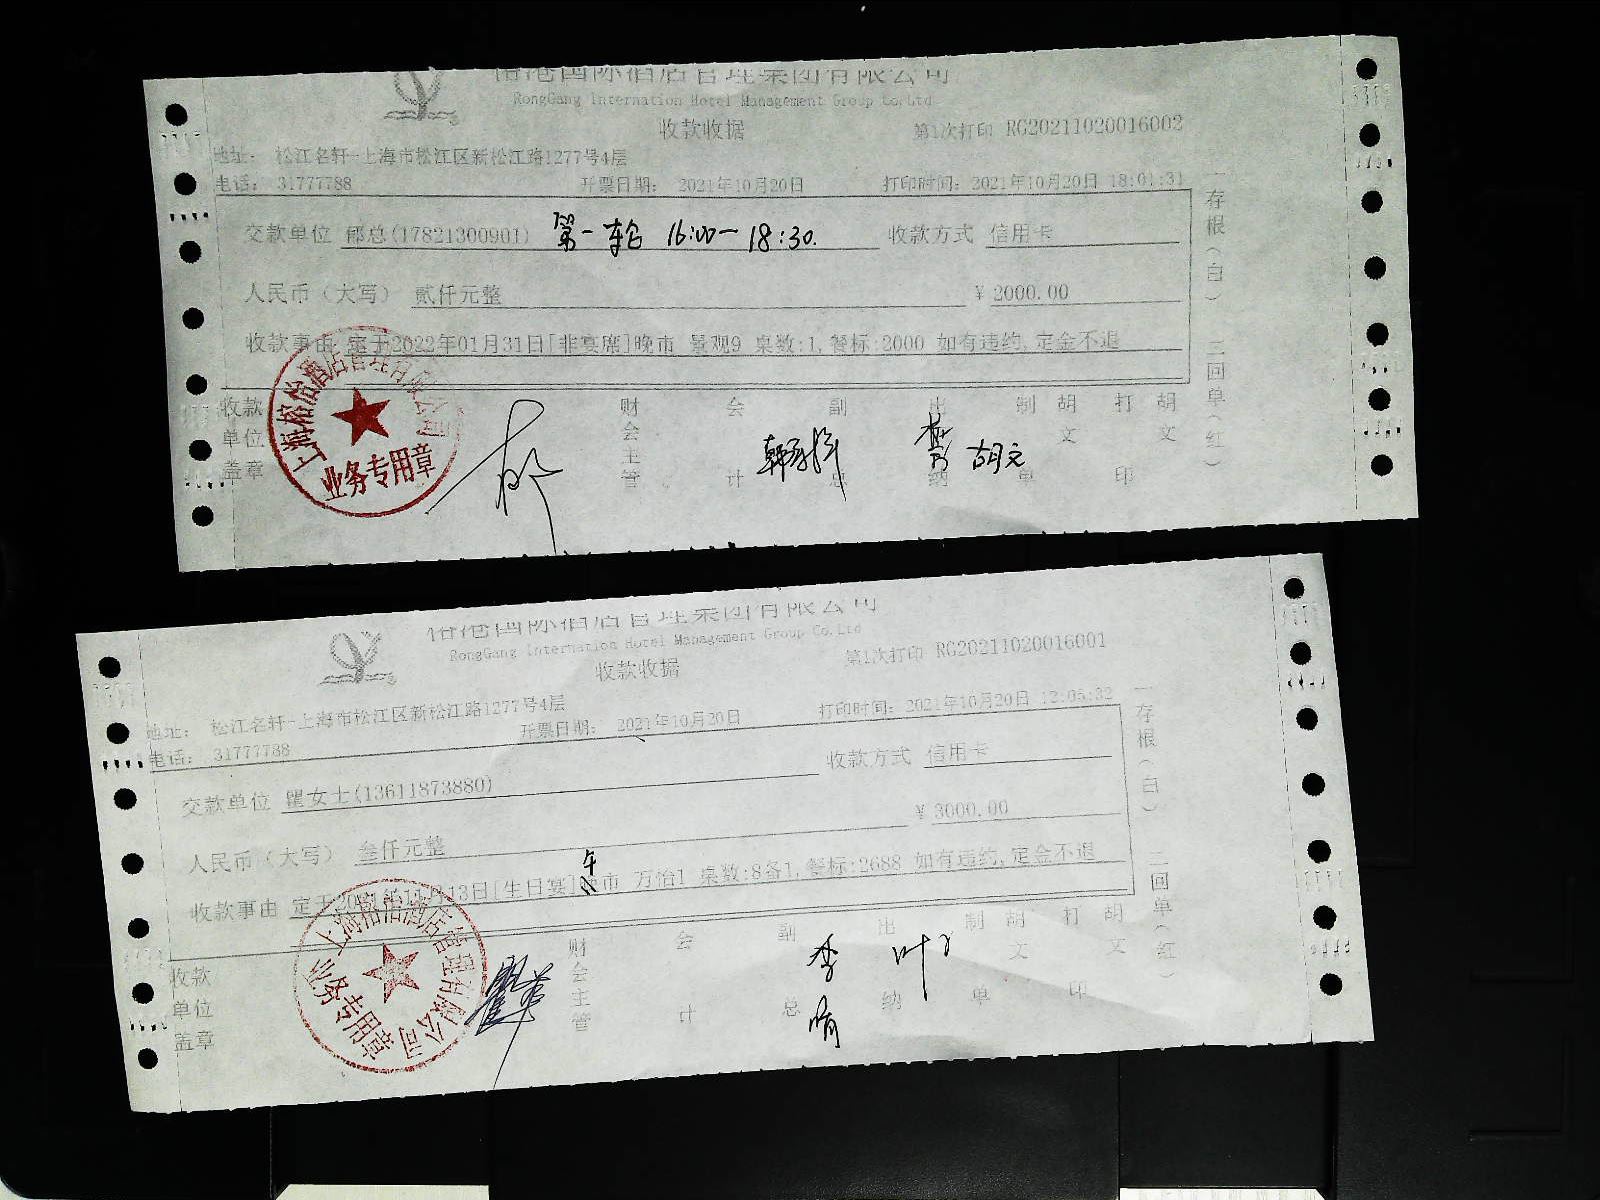 港国际酒店管理集团有限公司
RongGang Internation Hotel Management Group Co.Ltd
收款收据
第1次打印 RG20211020016002
地址: 松江名轩-上海市松江区新松江路1277号4层
电话: 31777788 开票日期: 2021年10月20日 打印时间: 2021年10月20日 18:01:31
交款单位 郁总(17821300901) 第一轮 16:00-18:30. 收款方式 信用卡
人民币（大写） 贰仟元整 ¥ 2000.00
收款事由 定于2022年01月31日[非宴席]晚市 景观9 桌数:1,餐标:2000 如有违约,定金不退
收款单位盖章 财会主管 会计 副总 出纳 制单 胡文 打印 胡文
胡文
上海榕怡酒店管理有限公司
业务专用章
一存根(白) 二回单(红)
港国际酒店管理集团有限公司
RongGang Internation Hotel Management Group Co.Ltd
收款收据
第1次打印 RG20211020016001
地址: 松江名轩-上海市松江区新松江路1277号4层
电话: 31777788 开票日期: 2021年10月20日 打印时间: 2021年10月20日 12:05:32
交款单位 瞿女士(13611873880) 收款方式 信用卡
人民币（大写） 叁仟元整 ¥ 3000.00
午
收款事由 定于2021年11月13日[生日宴]晚市 万怡1 桌数:8备1,餐标:2688 如有违约,定金不退
收款单位盖章 财会主管 会计 副总 出纳 制单 胡文 打印 胡文
李
叶
上海榕怡酒店管理有限公司
业务专用章
一存根(白) 二回单(红)